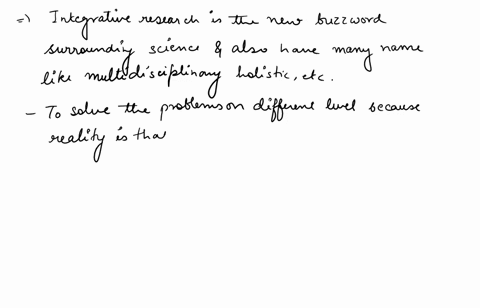 =) Integrative research is the new buzzword
surrounding science & also have many name
like multidisciplinary holistic, etc.
- To solve the problems on different level because
reality is tha